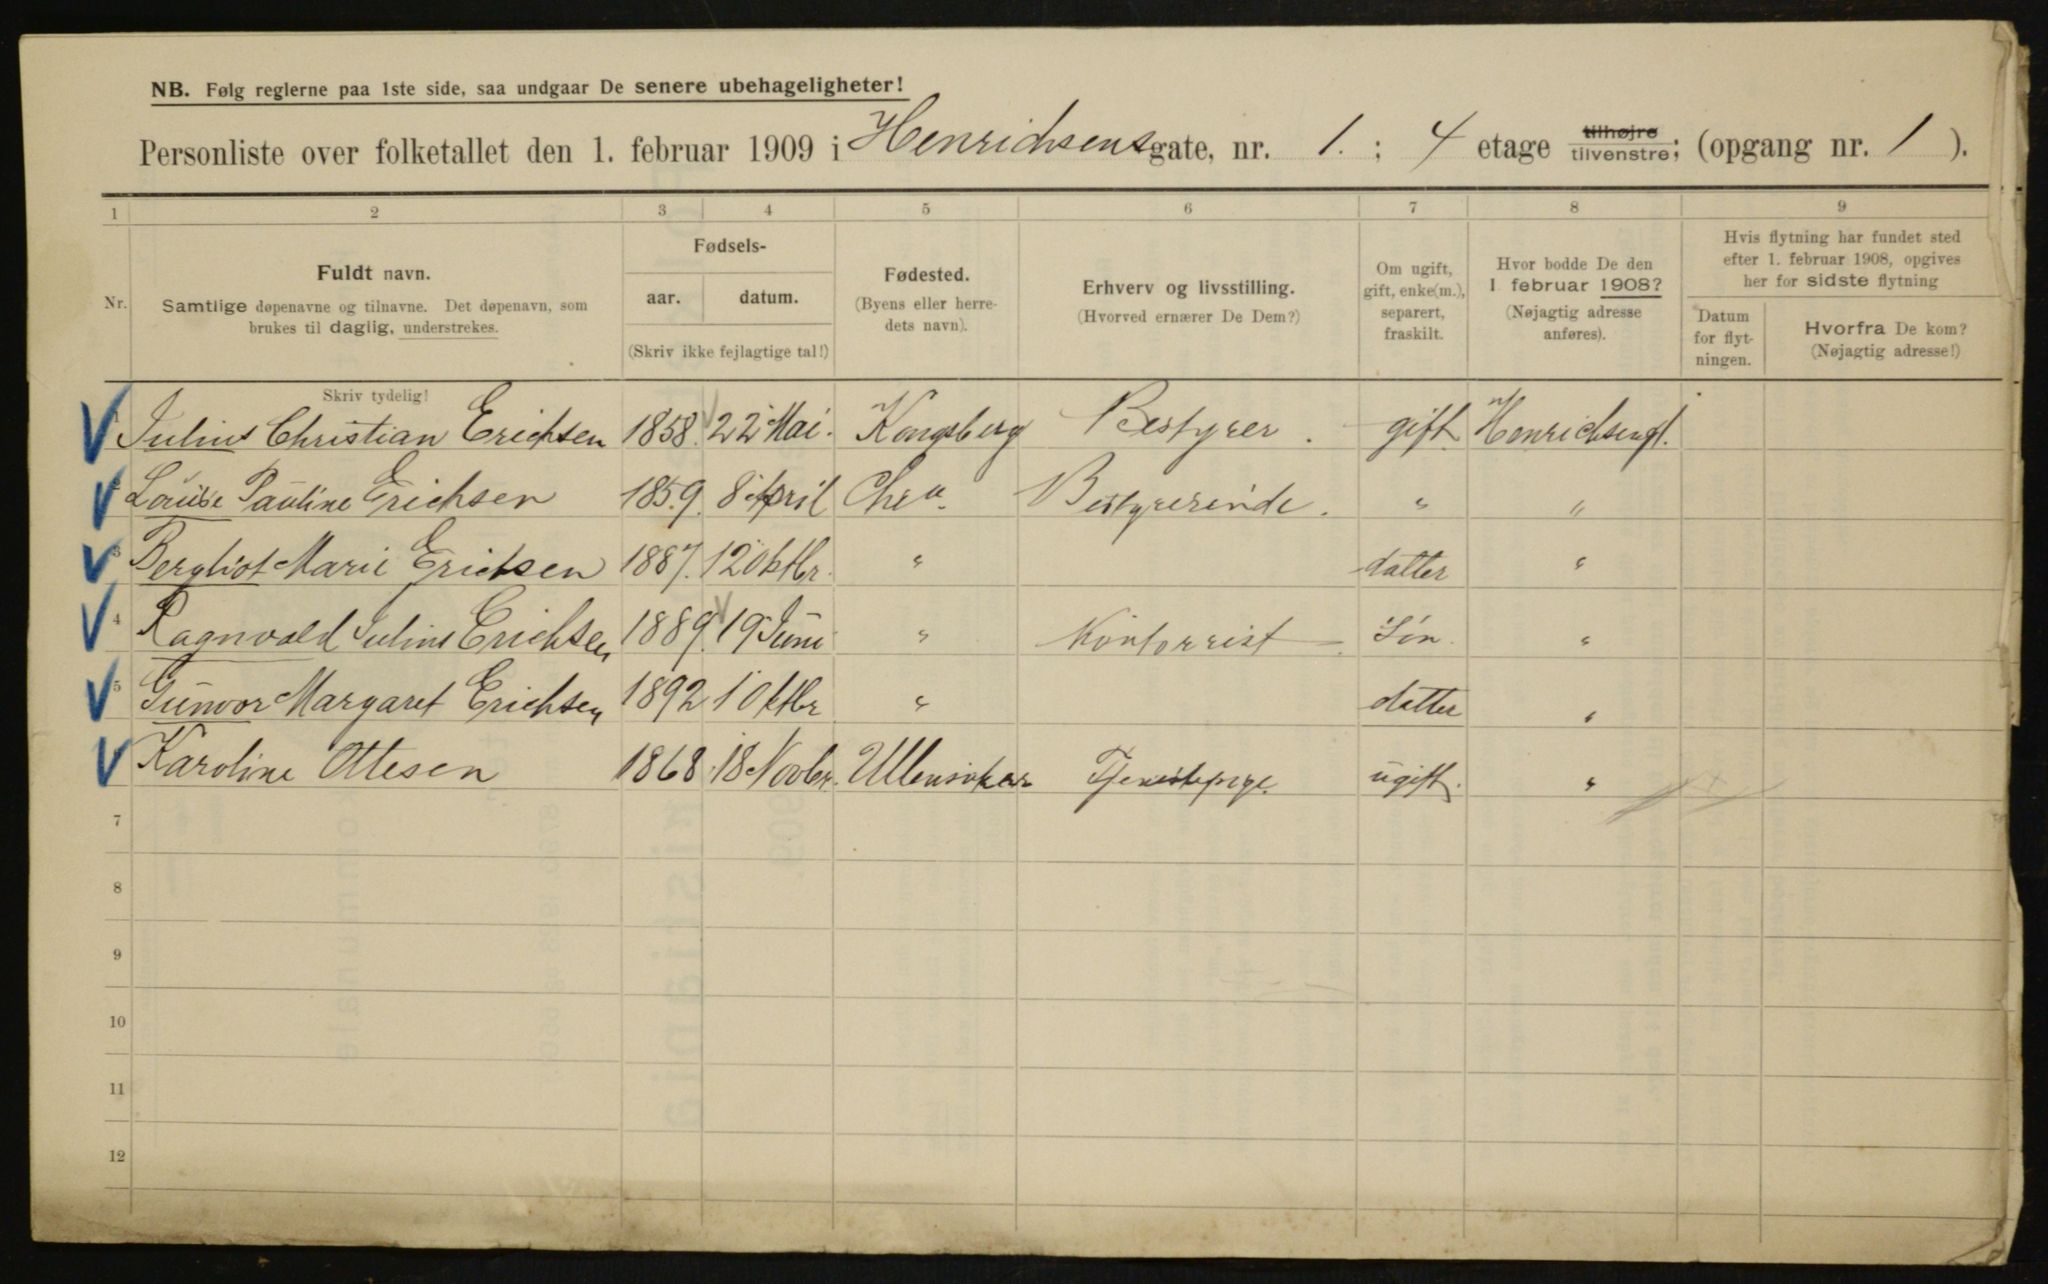 NB. Følg reglerne paa 1ste side, saa undgaar De senere ubehageligheter!
Personliste over folketallet den 1. februar 1909 i Henrichsensgate, nr. 1. ; 4 etage tilhøjre tilvenstre; (opgang nr. 1 ).
1 2 3 4 5 6 7 8 9
Nr. Fuldt navn. Samtlige døpenavne og tilnavne. Det døpenavn, som brukes til daglig, understrekes. Skriv tydelig!
Fødsels- aar. datum. (Skriv ikke fejlagtige tal!)
Fødested. (Byens eller herredets navn).
Erhverv og livsstilling. (Hvorved ernærer De Dem?)
Om ugift, gift, enke(m.), separert, fraskilt.
Hvor bodde De den 1 februar 1908? (Nøjagtig adresse anføres).
Hvis flytning har fundet sted efter 1. februar 1908, opgives her for sidste flytning
Datum for flytningen. Hvorfra De kom? (Nøjagtig adresse!)
Julius Christian Erichsen 1858. 22 Mai. Kongsberg Bestyrer. gift Henrichsengt.
Louise Pauline Erichsen 1859. 8 April Chra. Bestyrerinde. " "
3 Bergliot Marie Erichsen 1887. 12 Oktbr. " datter "
4 Ragnvald Julius Erichsen 1889. 19 Juni " Kontorrist Søn. "
5 Gunvor Margaret Erichsen 1892 1 Oktbr " datter "
Karoline Ottesen 1868. 18 Novbr. Ullensaker Tjenestepige. ugift. "
7
8
9
10
11
12